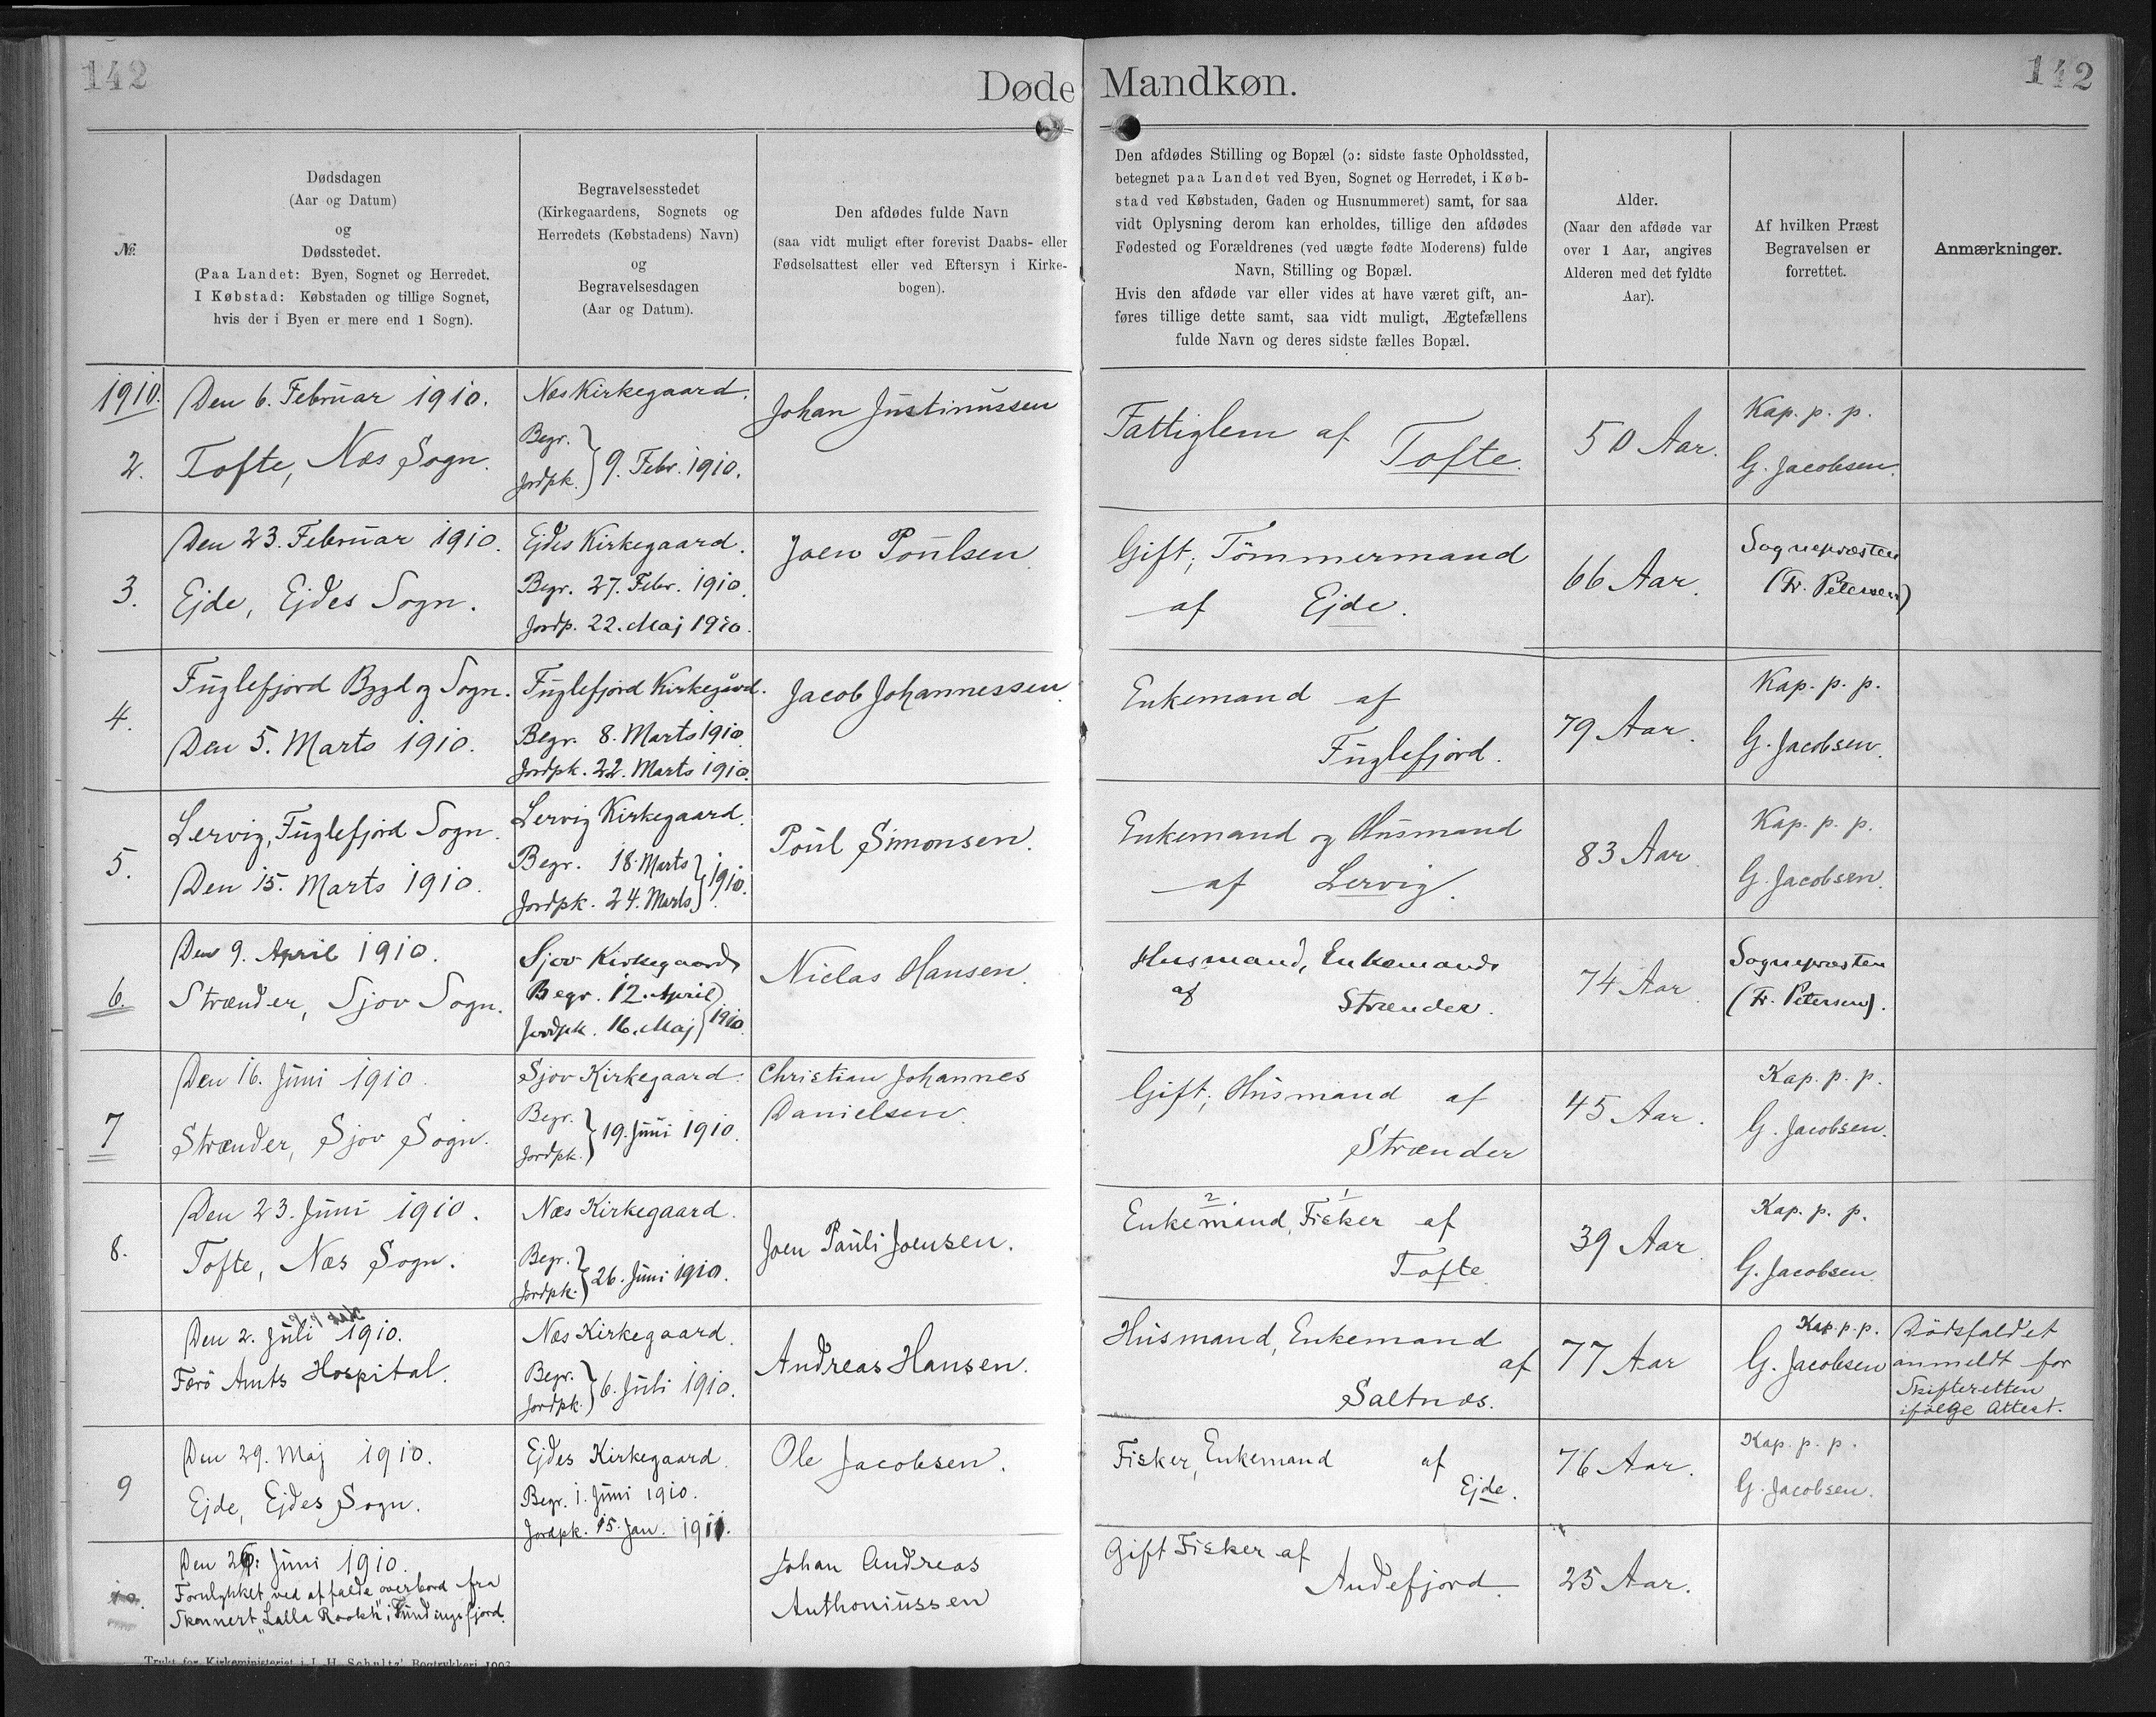 142
142
Døde Mandkøn.
№
Dødsdagen
(Aar og Datum)
og
Dødsstedet.
(Paa Landet: Byen, Sognet og Herredet.
I Købstad: Købstaden og tillige Sognet,
hvis der i Byen er mere end 1 Sogn).
Begravelsesstedet
(Kirkegaardens, Sognets og
Herredets (Købstadens) Navn)
og
Begravelsesdagen
(Aar og Datum).
Den afdødes fulde Navn
(saa vidt muligt efter forevist Daabs- eller
Fødselsattest eller ved Eftersyn i Kirke-
bogen).
Den afdødes Stilling og Bopæl (ɔ: sidste faste Opholdssted,
betegnet paa Landet ved Byen, Sognet og Herredet, i Køb-
stad ved Købstaden, Gaden og Husnummeret) samt, for saa
vidt Oplysning derom kan erholdes, tillige den afdødes
Fødested og Forældrenes (ved uægte fødte Moderens) fulde
Navn, Stilling og Bopæl.
Hvis den afdøde var eller vides at have været gift, an-
føres tillige dette samt, saa vidt muligt, Ægtefællens
fulde Navn og deres sidste fælles Bopæl.
Alder.
(Naar den afdøde var
over 1 Aar, angives
Alderen med det fyldte
Aar).
Af hvilken Præst
Begravelsen er
forrettet.
Anmærkninger.
1910.
2.
Den 6. Februar 1910.
Tofte, Næs Sogn.
Næs Kirkegaard.
Begr.
Jordpk. } 9. Febr. 1910.
Johan Justinussen
Fattiglem af
Tofte.
50 Aar.
Kap. p. p.
G. Jacobsen.
3.
Den 23. Februar 1910.
Ejde, Ejdes Sogn.
Ejdes Kirkegaard.
Begr. 27. Febr. 1910.
Jordp. 22. Maj 1910.
Joen Poulsen
Gift, Tömmermand
af Ejde.
66 Aar.
Sognepræsten
(Fr. Petersen)
4.
Fuglefjord Bygd og Sogn.
Den 5. Marts 1910.
Fuglefjord Kirkegård.
Begr. 8. Marts 1910
Jordpk. 22. Marts 1910.
Jacob Johannessen
Enkemand af
Fuglefjord.
79 Aar.
Kap. p. p.
G. Jacobsen.
5.
Lervig, Fuglefjord Sogn.
Den 15. Marts 1910.
Lervig Kirkegaard.
Begr. 18. Marts
Jordpk. 24. Marts } 1910.
Poul Simonsen.
Enkemand og Husmand
af Lervig.
83 Aar.
Kap. p. p.
G. Jacobsen.
6.
Den 9. April 1910.
Strænder, Sjov Sogn.
Sjov Kirkegaard
Begr. 12. April
Jordpk. 16. Maj } 1910.
Niclas Hansen.
Husmand, Enkemand
af Strænder.
74 Aar
Sognepræsten
(Fr. Petersen).
7
Den 16. Juni 1910.
Strænder, Sjov Sogn.
Sjov Kirkegaard.
Begr.
Jordpk. } 19. Juni 1910.
Christian Johannes
Danielsen.
Gift, Husmand af
Strænder
45 Aar.
Kap. p. p.
G. Jacobsen.
8.
Den 23. Juni 1910.
Tofte, Næs Sogn.
Næs Kirkegaard.
Begr.
Jordpk. } 26. Juni 1910.
Joen Pauli Joensen.
2 1
Enkemand, Fisker af
Tofte
39 Aar
Kap. p. p.
G. Jacobsen.
Den 2. Juli 1910.
Færö Amts Hospital.
Næs Kirkegaard.
Begr.
Jordpk. } 6. Juli 1910.
Andreas Hansen.
Husmand, Enkemand
af
Saltnæs.
77 Aar
Kap. p. p.
G. Jacobsen
Dödsfaldet
anmeldt for
Skifteretten
ifølge Attest.
9
Den 29. Maj 1910.
Ejde, Ejdes Sogn.
Ejdes Kirkegaard
Begr. 1. Juni 1910.
Jordpk. 15. Jan. 1911.
Ole Jacobsen.
Fisker, Enkemand af
Ejde.
76 Aar.
Kap. p. p.
G. Jacobsen.
10.
Juni 1910.
Forulykket ved at falde overbord fra
Skonnert „Lalla Rookh" i Fundingsfjord.
Johan Andreas
Anthoniussen
Gift Fisker af
Andefjord.
25 Aar.
Trykt for Kirkeministeriet i J. H. Schultz' Bogtrykkeri